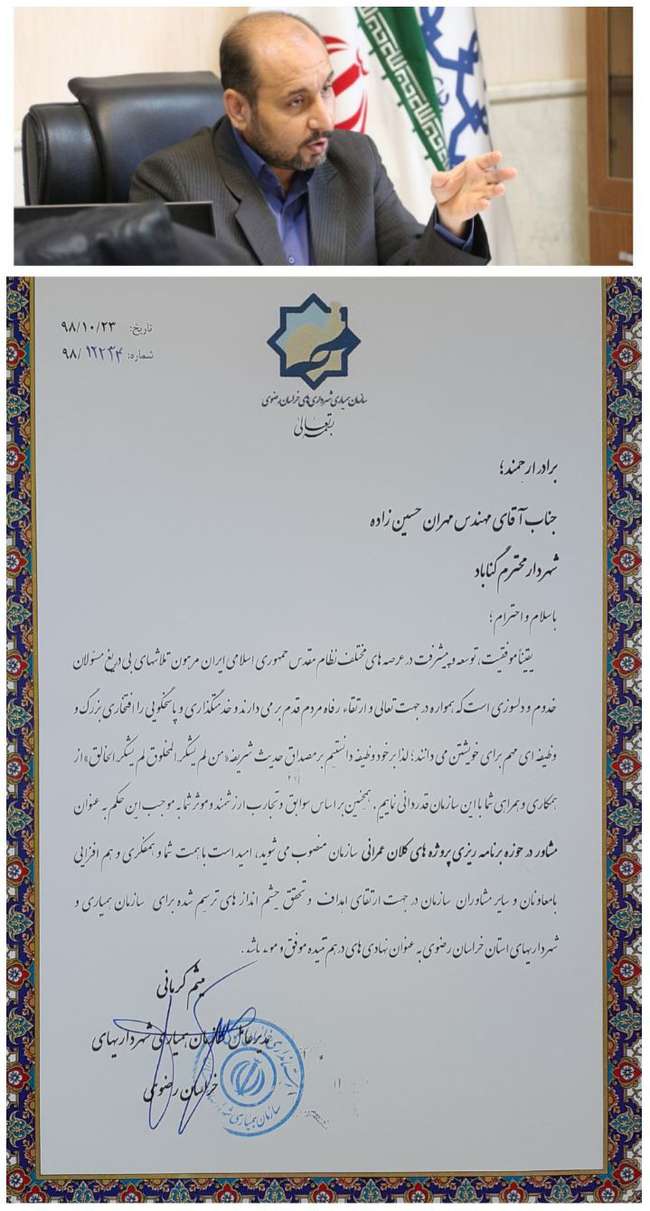 تاریخ: ۹۸/۱۰/۲۳
شماره: ۹۸/۱۲۲۴۴
سازمان همیاری شهرداری های خراسان رضوی
بسمه تعالی
برادر ارجمند؛
جناب آقای مهندس مهران حسین زاده
شهردار محترم گناباد
باسلام و احترام؛
یقیناً موفقیت، توسعه و پیشرفت در عرصه های مختلف نظام مقدس جمهوری اسلامی ایران مرهون تلاشهای بی دریغ مسئولان
خدوم و دلسوزی است که همواره در جهت تعالی و ارتقاء رفاه مردم قدم بر می دارند و خدمتگذاری و پاسخگویی را افتخاری بزرگ و
وظیفه ای مهم برای خویشتن می دانند؛ لذا بر خود وظیفه دانستیم بر مصداق حدیث شریفه «من لم یشکر المخلوق لم یشکر الخالق» از
همکاری و همراهی شما با این سازمان قدردانی نماییم، همچنین بر اساس سوابق و تجارب ارزشمند و موثر شما به موجب این حکم به عنوان
مشاور در حوزه برنامه ریزی پروژه های کلان عمرانی سازمان منصوب می شوید، امید است با همت شما و همفکری و هم افزایی
بامعاونان و سایر مشاوران سازمان در جهت ارتقای اهداف و تحقق چشم انداز های ترسیم شده برای سازمان همیاری و
شهرداریهای استان خراسان رضوی به عنوان نهادی های درهم تنیده موفق و موید باشد.
میثم کرمانی
مدیرعامل سازمان همیاری شهرداریهای
خراسان رضوی